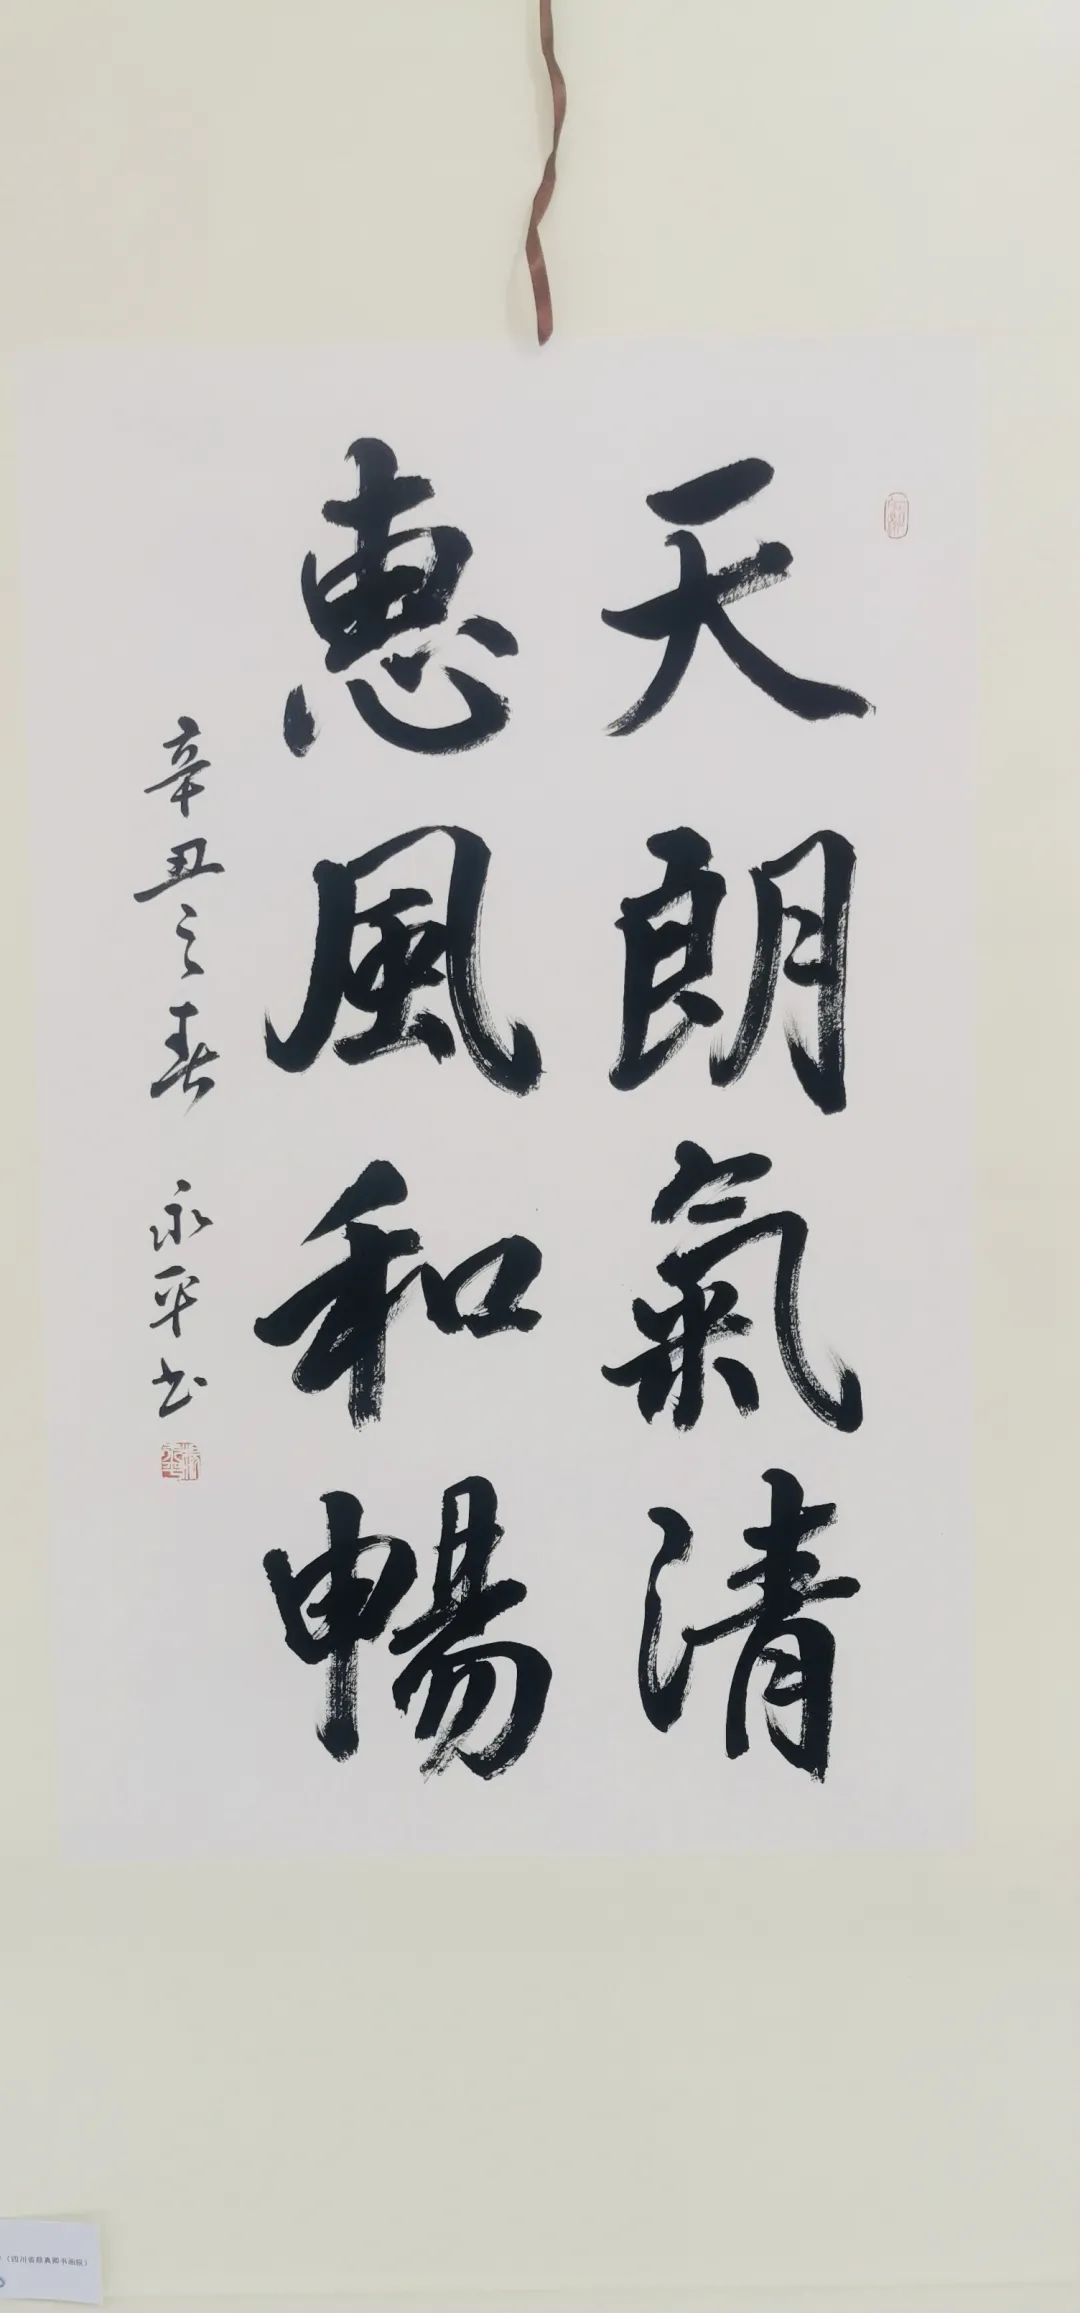 天朗氣清
惠風和暢
辛丑之春 永平书
（四川省蔡真卿书画院）